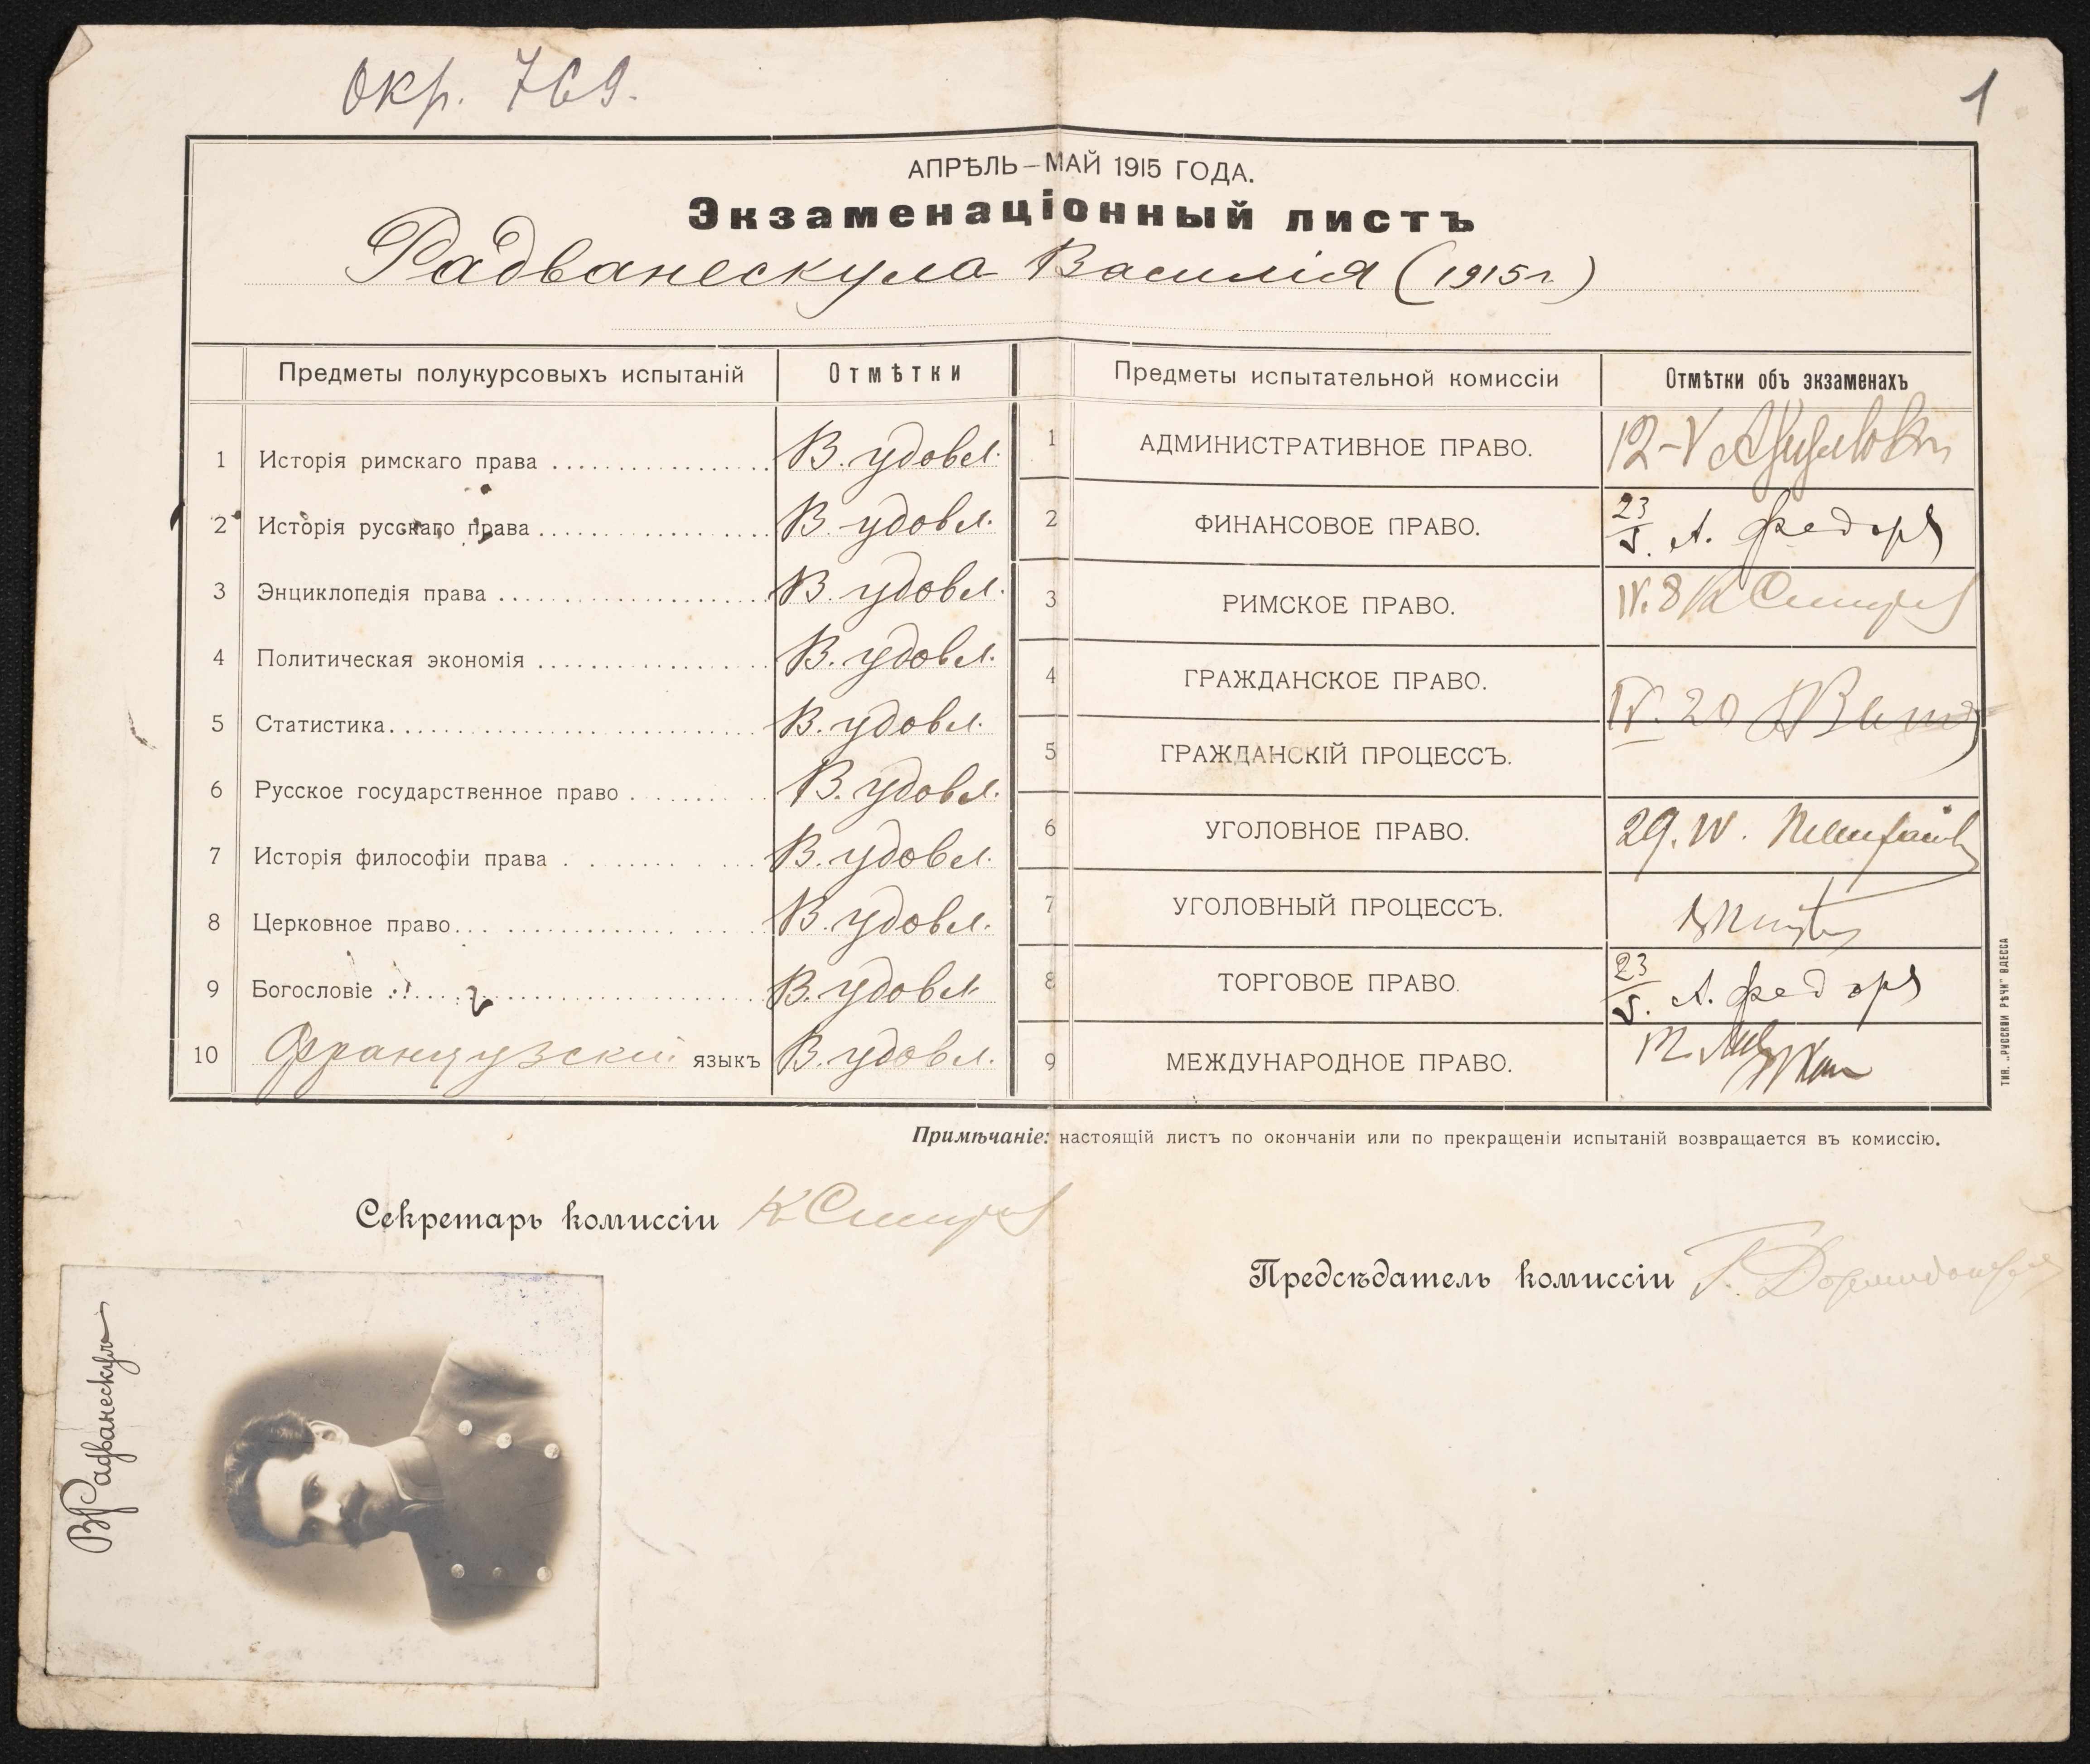 Окр. 769.
1
АПРѢЛЬ–МАЙ 1915 ГОДА.
Экзаменаціонный листъ
Радванескула Василія (1915 г.)
Предметы полукурсовыхъ испытаній
Отмѣтки
1 Исторія римскаго права В. удовл.
2 Исторія русскаго права В. удовл.
3 Энциклопедія права В. удовл.
4 Политическая экономія В. удовл.
5 Статистика В. удовл.
6 Русское государственное право В. удовл.
7 Исторія философіи права В. удовл.
8 Церковное право В. удовл.
9 Богословіе В. удовл.
10 Французскій языкъ В. удовл.
Предметы испытательной комиссіи
Отмѣтки объ экзаменахъ
1 АДМИНИСТРАТИВНОЕ ПРАВО. 12-V
2 ФИНАНСОВОЕ ПРАВО. 23/V. А. Федоров
3 РИМСКОЕ ПРАВО. IV.8 К Смирнов
4 ГРАЖДАНСКОЕ ПРАВО. IV. 20
5 ГРАЖДАНСКІЙ ПРОЦЕССЪ.
6 УГОЛОВНОЕ ПРАВО. 29. IV.
7 УГОЛОВНЫЙ ПРОЦЕССЪ.
8 ТОРГОВОЕ ПРАВО. 23/V. А. Федоров
9 МЕЖДУНАРОДНОЕ ПРАВО.
ТИП. „РУССКОЙ РѢЧИ" ОДЕССА
Примѣчаніе: настоящій листъ по окончаніи или по прекращеніи испытаній возвращается въ комиссію.
Секретарь комиссіи К Смирнов
Предсѣдатель комиссіи Г.
ВРадванескулъ